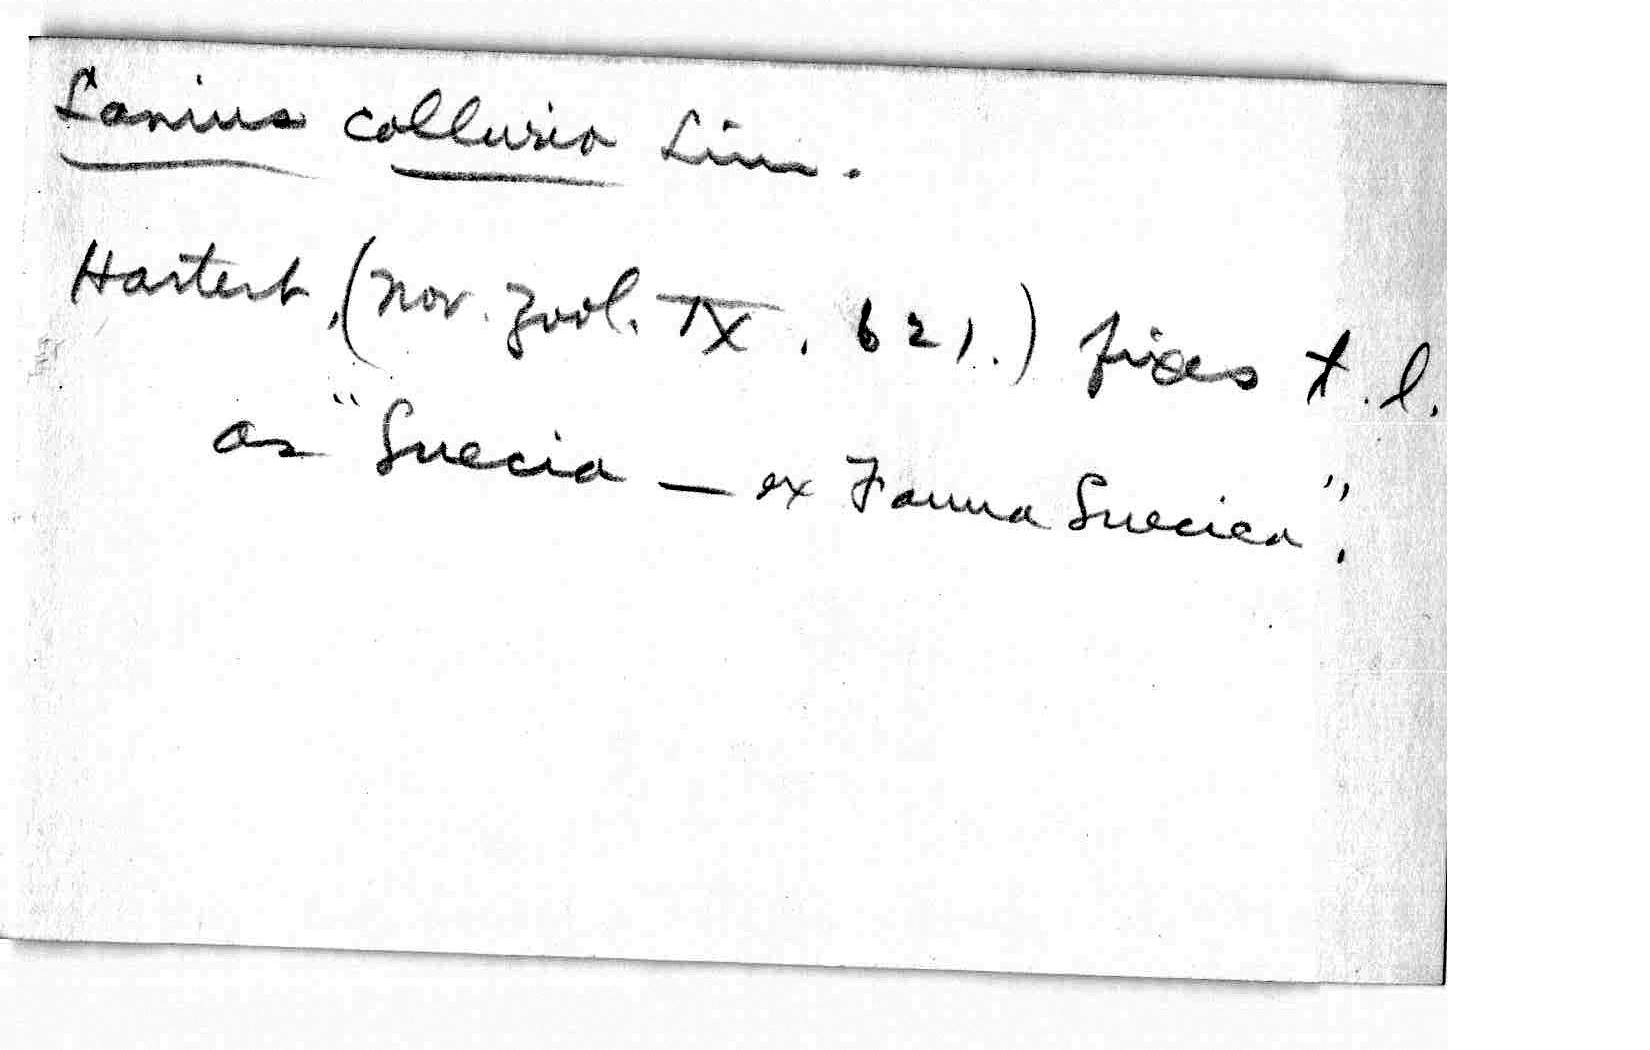 Lanius collurio Linn.
Hartert, (Nov. Zool. IX. 621.) fixes t.l.
as "Suecia — ex Fauna Suecica".